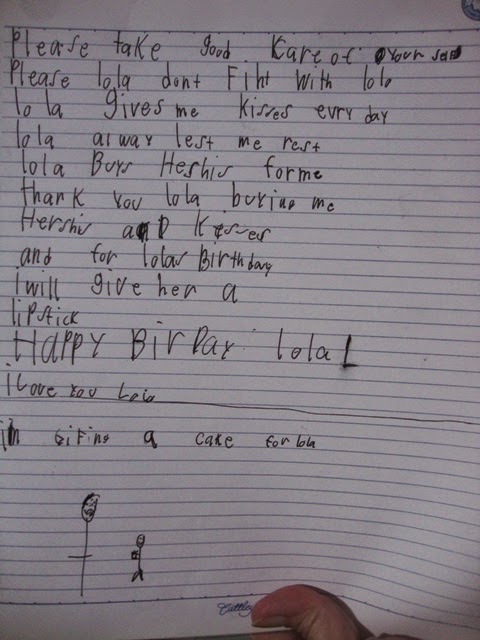 Please take good Kare of your self
Please lola dont Fiht with lolo
lola gives me kisses evry day
lola alway lest me rest
lola Buys Heshis forme
thank you lola buring me
Hershis anD Kisses
and for lolas Birthday
i will give her a
lipstick
HAPPY BirDay lola!
i Love you Lola
im gifing a cake for lola